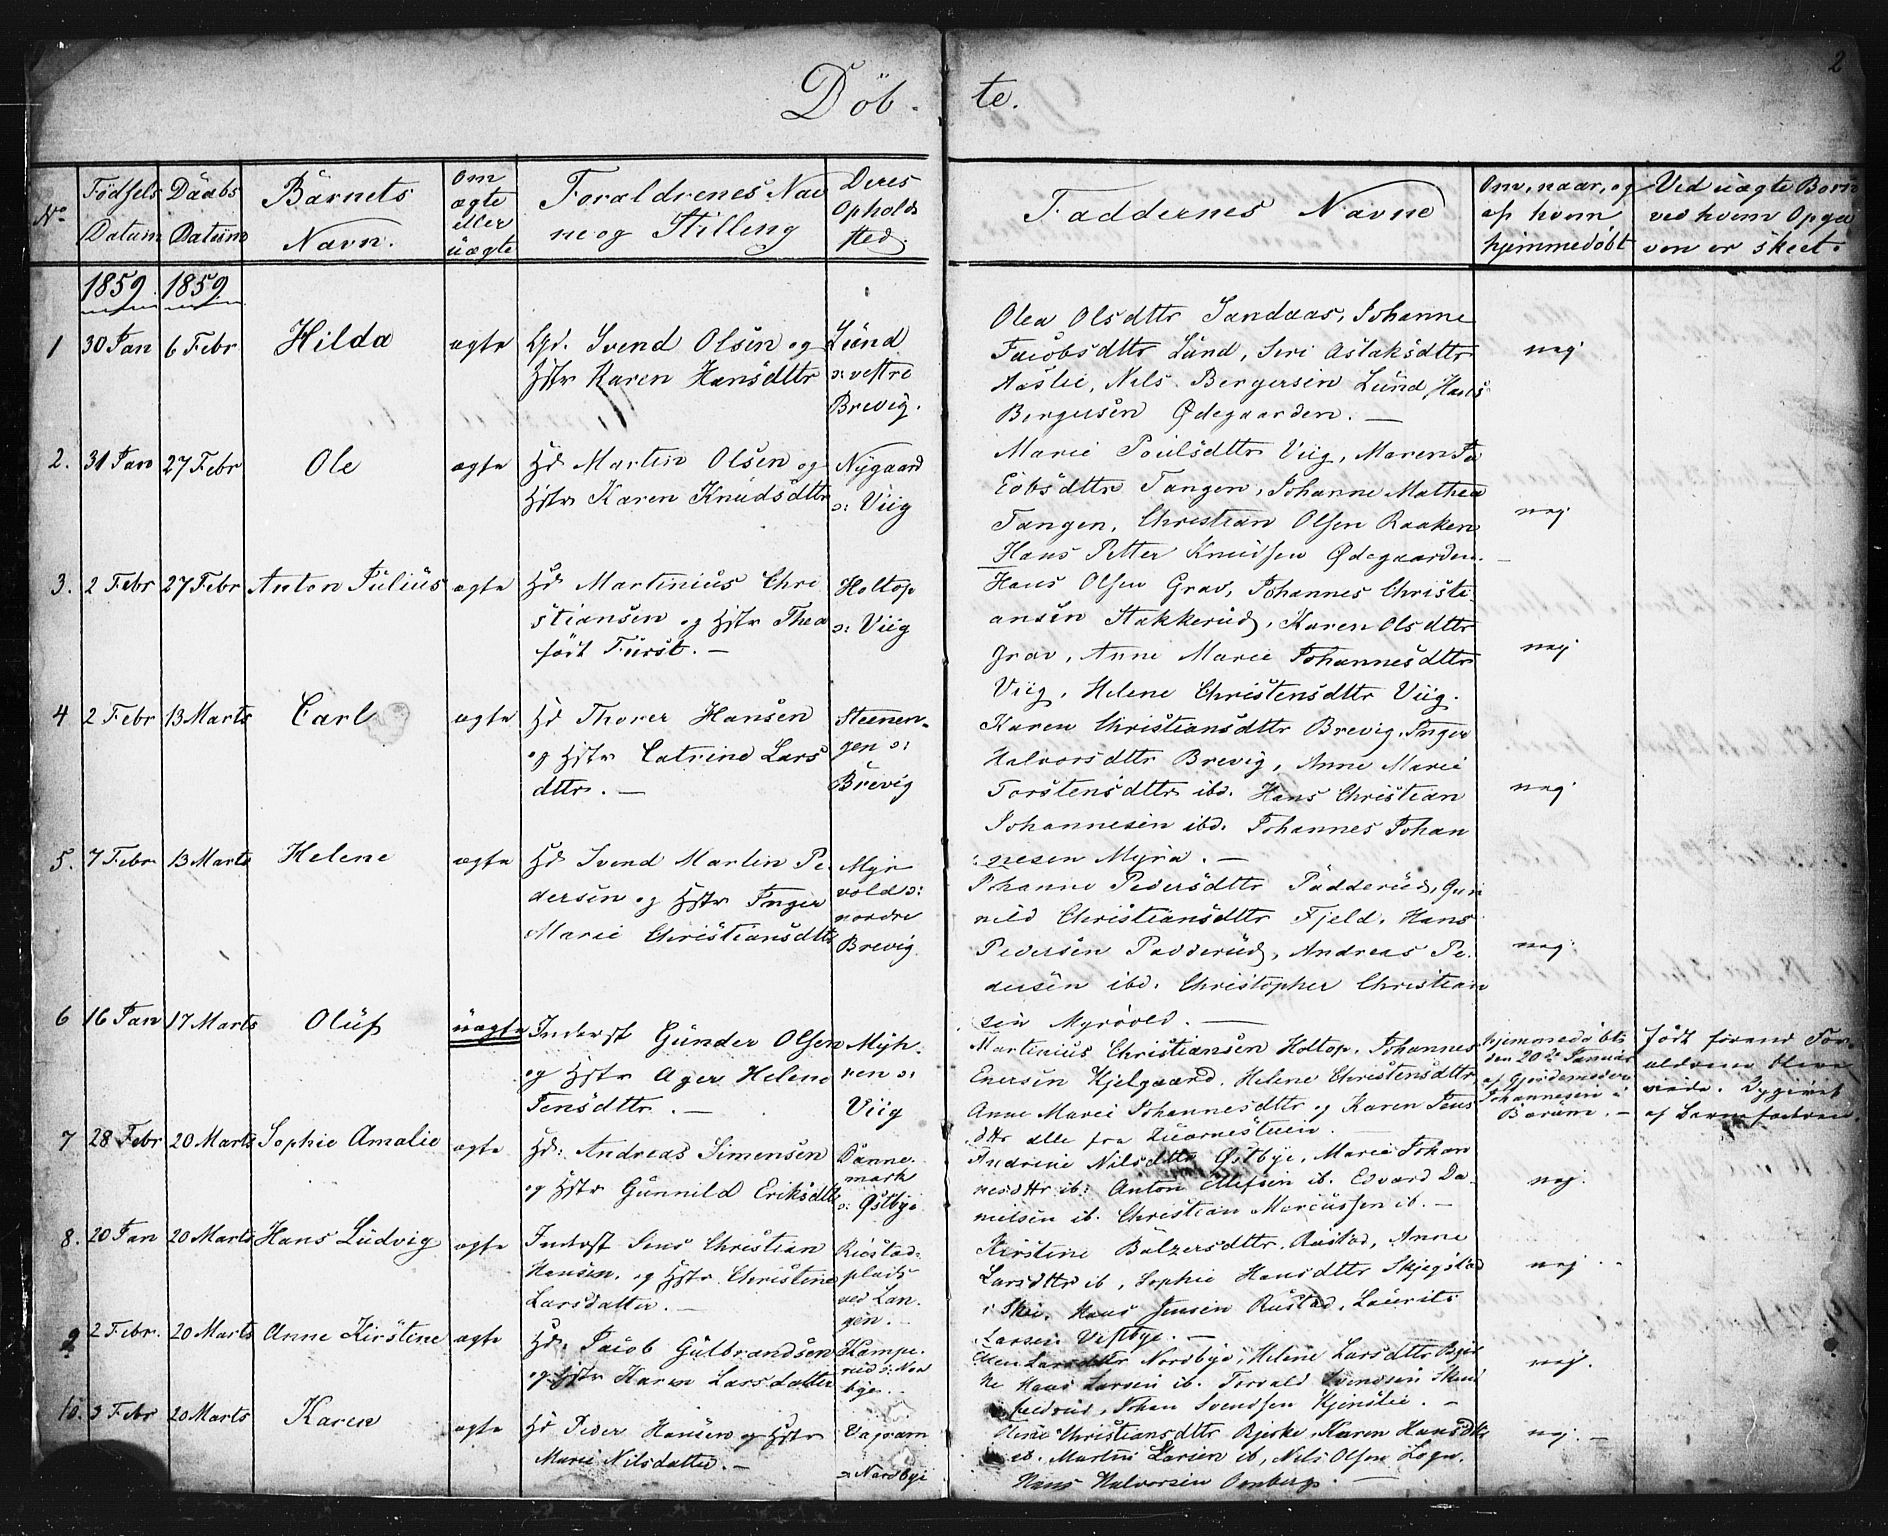 2
Döb-te.
No
Födsels Datum
Daabs Datum
Barnets Navn.
Om ægte eller uægte
Foraldrenes Navne og Stilling
Deres Opholdsted.
Faddernes Navne
Om, naar, og af hvem hjemmedöbt
Ved uægte Börn ved hvem Opgaven er skeet.
1859. 1859.
1 30 Jan 6 Febr Hilda ægte
Gd. Svend Olsen og
Hstr Karen Hansdttr
Lund
o: vestre
Brevig.
Olea Olsdttr Sandaas, Johanne
Jacobsdttr Lund, Siri Aslaksdttr
Aaslie, Nils Bergersen Lund, Hans
Bergersen Ødegaarden. —
nej
2. 31 Jan 27 Febr Ole ægte
Hd Martin Olsen og
Hstr Karen Knudsdttr
Nygaard
o: Viig
Marie Poulsdttr Viig, Maren Ja
cobsdttr Tangen, Johanne Mathea
Tangen, Christian Olsen Raaken
Hans Petter Knudsen Ødegaarden. —
nej
3. 2 Febr 27 Febr Anton Julius ægte
Hd Martinius Chri
stiansen og Hstr Thea
født Furst. —
Holtop
o: Viig
Hans Olsen Grav, Johannes Christi
ansen Stakkerud, Karen Olsdttr
Grav, Anne Marie Johannesdttr
Viig, Helene Christensdttr Viig.
nej
4 2 Febr 13 Marts Carl ægte
Hd Thorer Hansen
og Hstr Catrine Lars
dttr. —
Steenen-
gen o:
Brevig
Karen Christiansdttr Brevig, Inger
Halvorsdttr Brevig, Anne Marie
Torstensdttr ibd. Hans Christian
Johannesen ibd. Johannes Johan
nesen Myra. —
nej
5. 7 Febr 13 Marts Helene ægte
Hd Svend Martin Pe
dersen og Hstr Inger
Marie Christiansdttr
Myr
vold o:
nordre
Brevig
Johanne Pedersdttr Padderud, Gun
nild Christiansdttr Fjeld, Hans
Pedersen Padderud, Andreas Pe
dersen ibd. Christopher Christian
sen Myrvold. —
nej
6 16 Jan 17 Marts Oluf uægte
Inderst Gunder Olsen
og Hstr Ager Helene
Jensdttr. —
Myh-
ren o:
Viig
Martinius Christiansen Holtop, Johannes
Enersen Kjelgaard, Helene Christensdttr,
Anne Marie Johannesdttr og Karen Jens
dttr alle fra
hjemmedöbt
den 20de Januar
af Gjordemoder
Johannesen i
Bærum. —
født førend For-
ældrene bleve
viede. Opgivet
af Barnefaderen.
7 28 Febr 20 Marts Sophie Amalie ægte
Hd: Andreas Simensen
og Hstr Gunnild Eriksdttr
Danne-
mark
o: Østbye
Andrine Nilsdttr Østbye, Marie Johan
nesdttr ib: Anton Ellefsen ib. Edvard Da-
nielsen ib. Christian Marcussen ib. —
nej.
8. 20 Jan 20 Marts Hans Ludvig ægte
Inderst Jens Christian
Hansen, og Hstr Christine
Larsdatter. —
Rustad-
plads
ved Lan-
gen. —
Kirstine Balzersdttr. Rustad, Anne
Larsdttr ib, Sophie Hansdttr Skjegstad
i Skie. Hans Jensen Rustad, Laurits
Larsen Vestbye. —
nej
9 2 Febr. 20 Marts Anne Kirstine ægte
Hd. Jacob Gulbrandsen
og Hstr Karen Larsdatter
Kampe-
rud o: Nor
bye.
Ellen Larsdttr Nordbye, Helene Larsdttr Bjer
ke Hans Larsen ib. Torvald Svendsen
Johan Svendsen —
nej.
10. 3 Febr 20 Marts Karen ægte
Hd Peder Hansen og Hstr
Marie Nilsdatter. —
Vajoram
o: Nordbye
Christiansdttr Bjerke, Karen Hansdttr
ib. Martin Larsen ib, Nils Olsen
Hans Halvorsen
nej. —